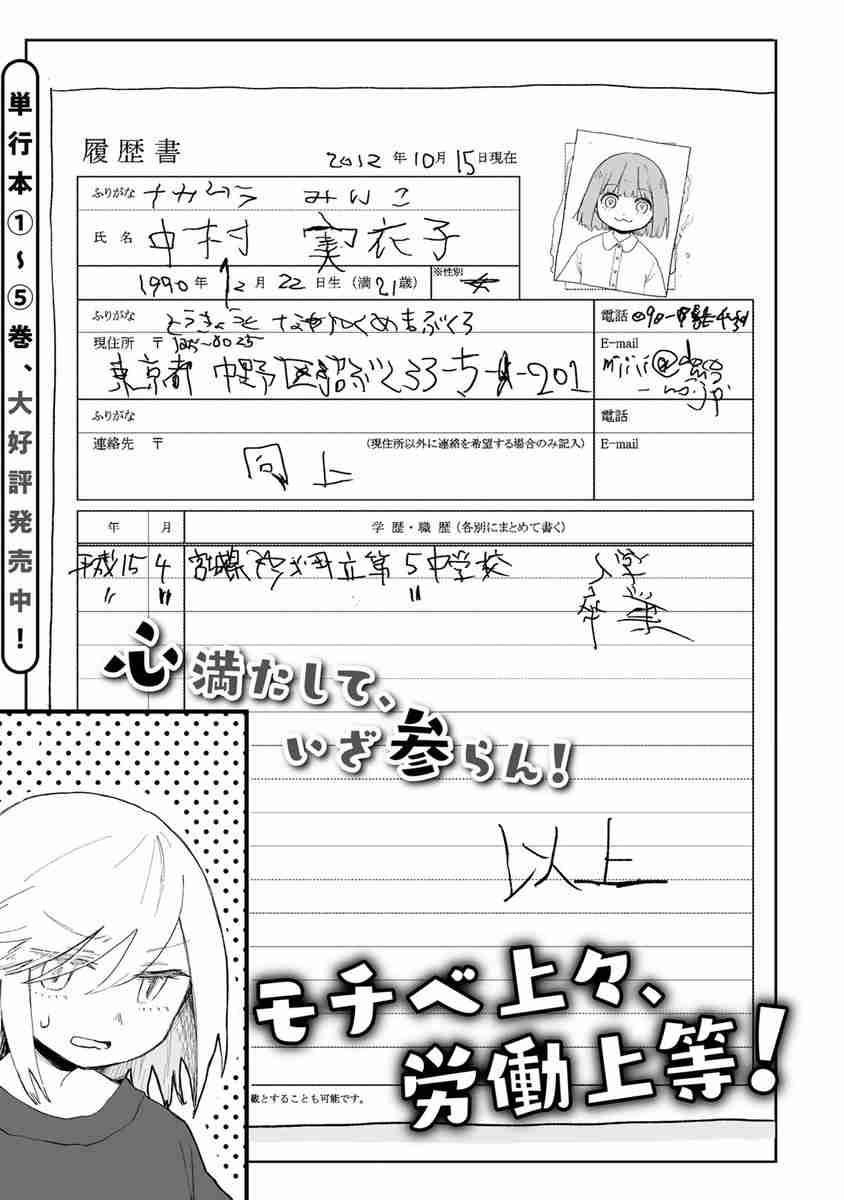 単行本①〜⑤巻、大好評発売中!
履歴書
2012年10月15日現在
ふりがな ナカムラ みいこ
氏名 中村 実衣子
1990年12月22日生(満21歳)
※性別 女
ふりがな とうきょうと なかのくぬまぶくろ
現住所 〒165-0025
東京都 中野区沼ぶくろ3-5-201
電話 090-
E-mail
mjiji@doco
mo.jp
ふりがな
連絡先 〒 (現住所以外に連絡を希望する場合のみ記入)
同上
電話
E-mail
年 月 学歴・職歴(各別にまとめて書く)
平成15 4 宮城県 立第5中学校 入学
〃 〃 〃 卒業
心満たして、
いざ参らん!
以上
モチベ上々、
労働上等!
載とすることも可能です。